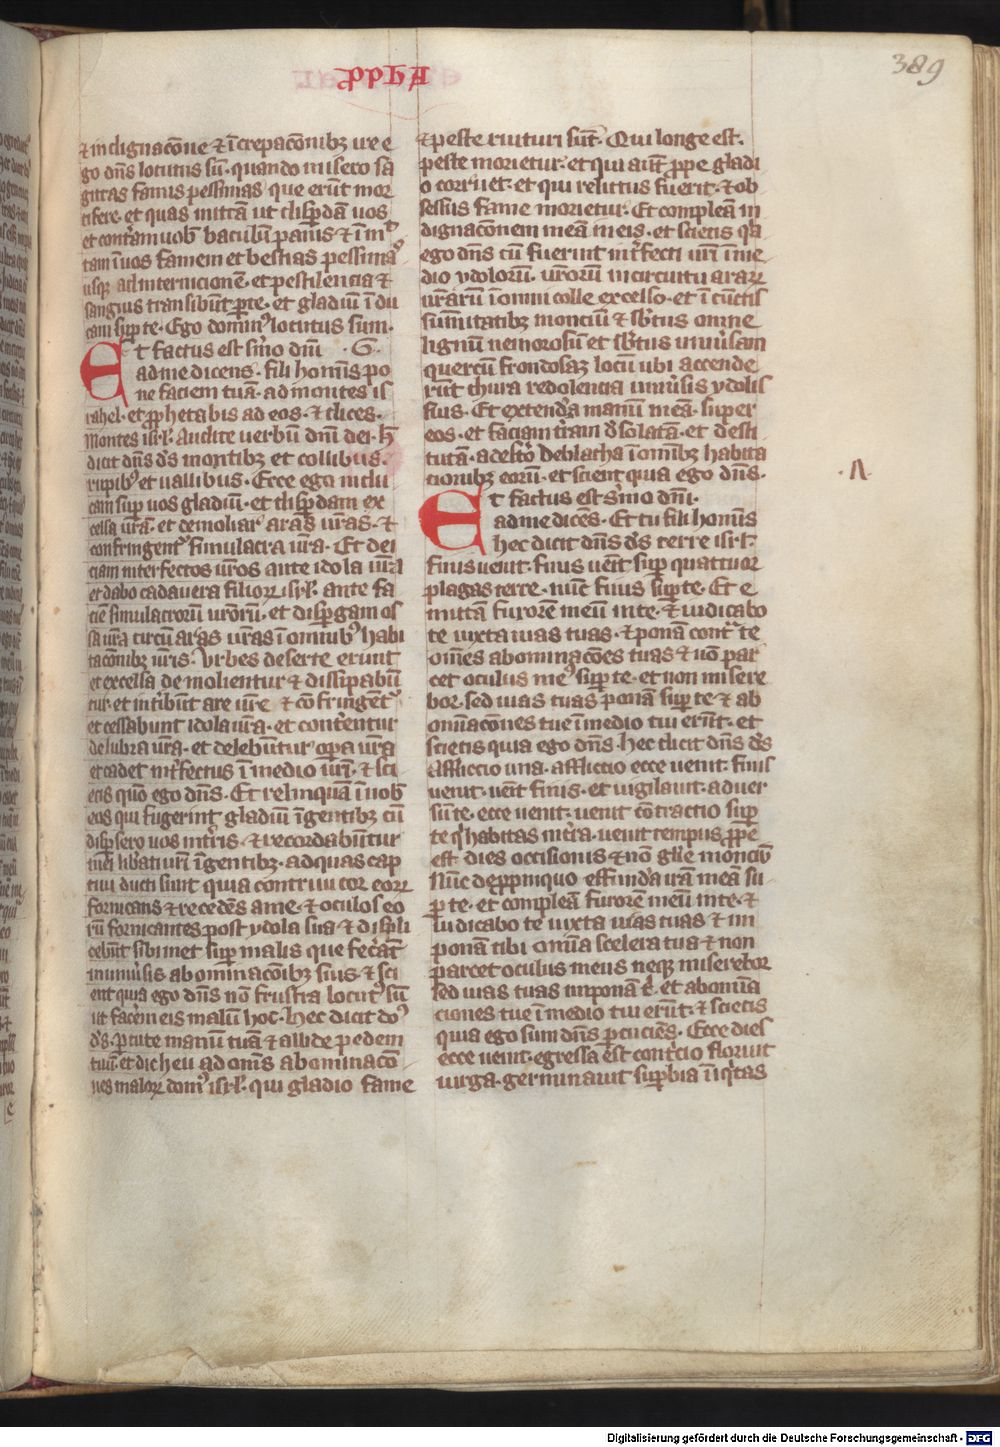 389
⁊ indignacōne ⁊ ĩcrepacōnibꝫ ire e
go dñs locutus sũ· quando misero sa
gittas famis pessimas· que erũt mor
tifere· et quas mittã ut disꝑdã uos
et conterã uob̃ baculũ panis· ⁊ ĩm̃
tam ĩ uos famem et bestias pessimas
usqꝫ ad internicionẽ· et pestilencia ⁊
sanguis transibũt ꝑ te· et gladiũ ĩdu
cam suꝑ te· Ego dominꝰ locutus sum·
Et factus est sm̃o dñi ·G·
ad me dicens· fili hominis po
ne faciem tuã· ad montes is
rahel· et ꝓphetabis ad eos· ⁊ dices·
Montes isrl̃· Audite uerbũ dñi dei· h̃
dicit dñs d̃s montibꝫ et collibus·
rupibꝰ et uallibus· Ecce ego indu
cam suꝑ uos gladiũ· et disꝑdam ex
celsa ur̃a· et demoliar aras ur̃as· ⁊
confringentꝰ simulacra ur̃a· Et dei
ciam interfectos ur̃os ante idola ur̃a
et dabo cadauera filioꝝ isrl̃· ante fa
ciẽ simulacrorũ ur̃orũ· et disꝑgam os
sa ur̃a circũ aras ur̃as ĩ omnibꝰ habi
tacōnibꝫ ur̃is· Vrbes deserte erunt
et excelsa demolientur ⁊ dissipabũ
tur· et intibunt are ur̃e ⁊ cõfringentꝰ
et cessabunt idola ur̃a· et conterentur
delubra ur̃a· et delebũtur oꝑa ur̃a
et cadet int̃fectus ĩ medio ur̃i· ⁊ sci
etis quõ ego dñs· Et relinquã ĩ uob̃
eos qui fugerint gladiũ ĩ gentibꝫ cũ
disꝑsero uos in t̃ris· ⁊ recordabũtur
mei lib̃ati ur̃i ĩ gentibꝫ· ad quas cap
tiui ducti sunt quia contriui cor eoꝝ
fornicans ⁊ recedẽs a me· ⁊ oculos eo
rũ fornicantes post ydola sua ⁊ displi
cebũt sibimet suꝑ malis que fecer̃t
in uniũsis abominacōibꝫ suis· ⁊ sci
ent quia ego dñs nõ frustra locutꝰ sũ
ut facerẽ eis malũ hoc· Hec dicit dñs
d̃s· ꝑcute manũ tuã ⁊ allide pedem
tuũ· et dic heu ad omẽs abominacõ
nes maloꝝ domꝰ isrl̃· qui gladio fame
⁊ peste ruituri sũt· Qui longe est·
peste morietur· et qui aut̃ ꝓpe gladi
o corruet· et qui relictus fuerit· ⁊ ob
sessus fame morietur· Et compleã in
dignacōnem meã in eis· et scietis qͥa
ego dñs cũ fuerint int̃fecti ur̃i ĩ me
dio ydolorũ· ur̃orũ in circuitu araꝝ
ur̃arũ ĩ omni colle excelso· et ĩ cũctis
sũmitatibꝫ monciũ ⁊ sb̃tus omne
lignũ nemorosũ et sb̃tus uniũsam
quercũ frondosaꝫ locũ ubi accende
rũt thura redolencia uniũsis ydolis
suis· Et extendã manũ meã· super
eos· et faciam t̃ram d̃solatã· et desti
tutã· a deserto deblatha ĩ omĩbꝫ habita
cionibꝫ eorũ· et scient quia ego dñs·
Et factus est sm̃o dñi·
ad me dicẽs· Et tu fili hominis
hec dicit dñs d̃s terre isrl̃·
finis uenit· finis uẽit suꝑ quattuor
plagas terre· nũc finis suꝑ te· Et e
mittã furorẽ meũ in te· ⁊ iudicabo
te iuxta uias tuas· ⁊ ponã cont̃ te
omẽs abominacōes tuas ⁊ nõ par
cet oculus meꝰ suꝑ te· et non misere
bor· sed uias tuas ponã suꝑ te ⁊ ab
ominacōnes tue ĩ medio tui erũt· et
scietis quia ego dñs· Hec dicit dñs d̃s
Affliccio una· affliccio ecce uenit· finis
uenit· uẽit finis· et uigilauit· aduer
sũ te· ecce uenit· uenit cõtractio suꝑ
te qͥ habitas in t̃ra· uenit tempus ꝓpe
est dies occisionis ⁊ nõ gl̃ie monciũ
Nũc de ꝓpinquo effundã irã meã su
ꝑ te· et compleã furorẽ meũ in te· ⁊
iudicabo te iuxta uias tuas ⁊ im
ponã tibi omĩa scelera tua ⁊ non
parcet oculus meus neqꝫ miserebor
sed uias tuas imponã t̃· et abomĩa
ciones tue ĩ medio tui erũt· ⁊ scietis
quia ego sum dñs ꝑcuciẽs· Ecce dies
ecce uenit· egressa est contͥcio floruit
uirga· germinauit suꝑbia ĩiqͥtas
·A
Digitalisierung gefördert durch die Deutsche Forschungsgemeinschaft - DFG